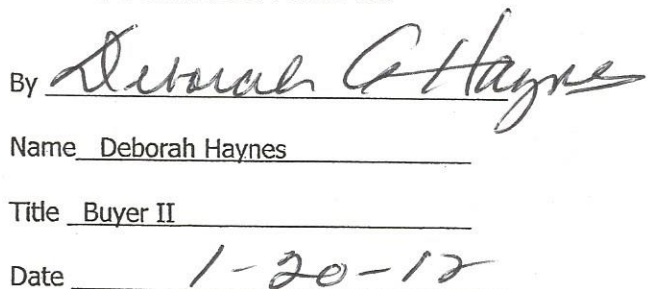 By Deborah A Haynes
Name Deborah Haynes
Title Buyer II
Date 1-20-12